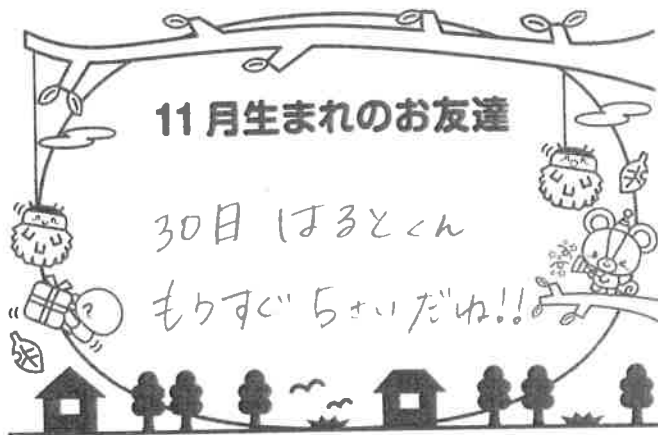 11月生まれのお友達
30日 はるとくん
もうすぐ 5さいだね!!